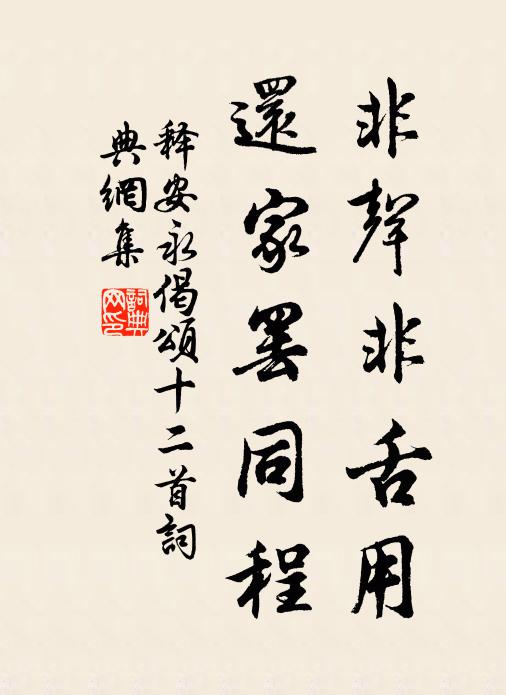 非聲非舌用
還家罢同程
释安永偈頌十二首詞
典網集
詞典
网印